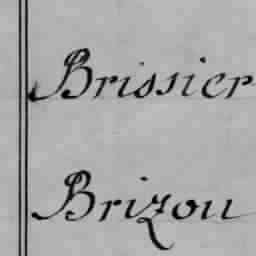 Brissier
Brizou